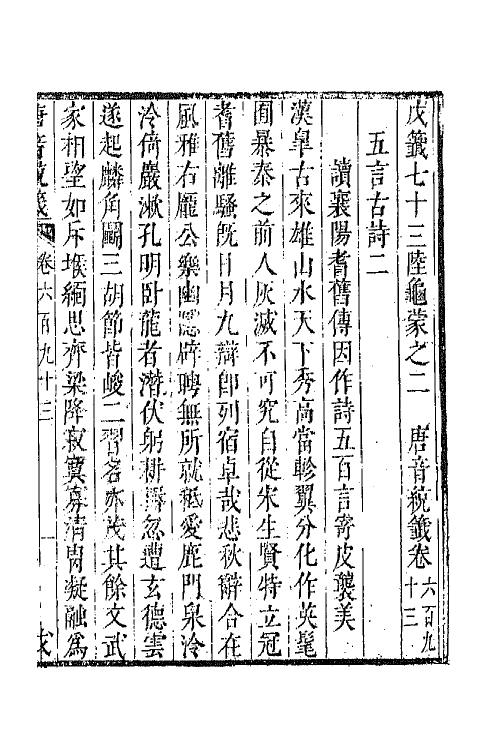 戊籤七十三陸龜蒙之二　唐音統籤卷六百九十三
五言古詩二
讀襄陽耆舊傳因作詩五百言寄皮襲美
漢臯古來雄山水天下秀高當軫翼分化作英髦
囿暴秦之前人灰滅不可究自從宋生賢特立冠
耆舊離騷旣日月九辯卽列宿卓哉悲秋辭合在
風雅右龐公樂幽隱辟聘無所就祗愛鹿門泉泠
泠倚巖漱孔明卧龍者潛伏躬耕耨忽遭玄德雲
遂起麟角鬭三胡節皆峻二習名亦茂其餘文武
家相望如斥堠緬思齊梁降寂寞寡清胄凝融爲
唐音統籤　卷六百九十三　一　戊